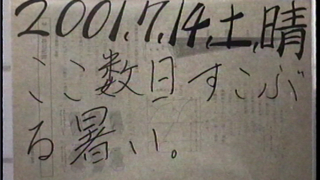 2001,7,14,土,晴
ここ数日すこぶ
る暑い。